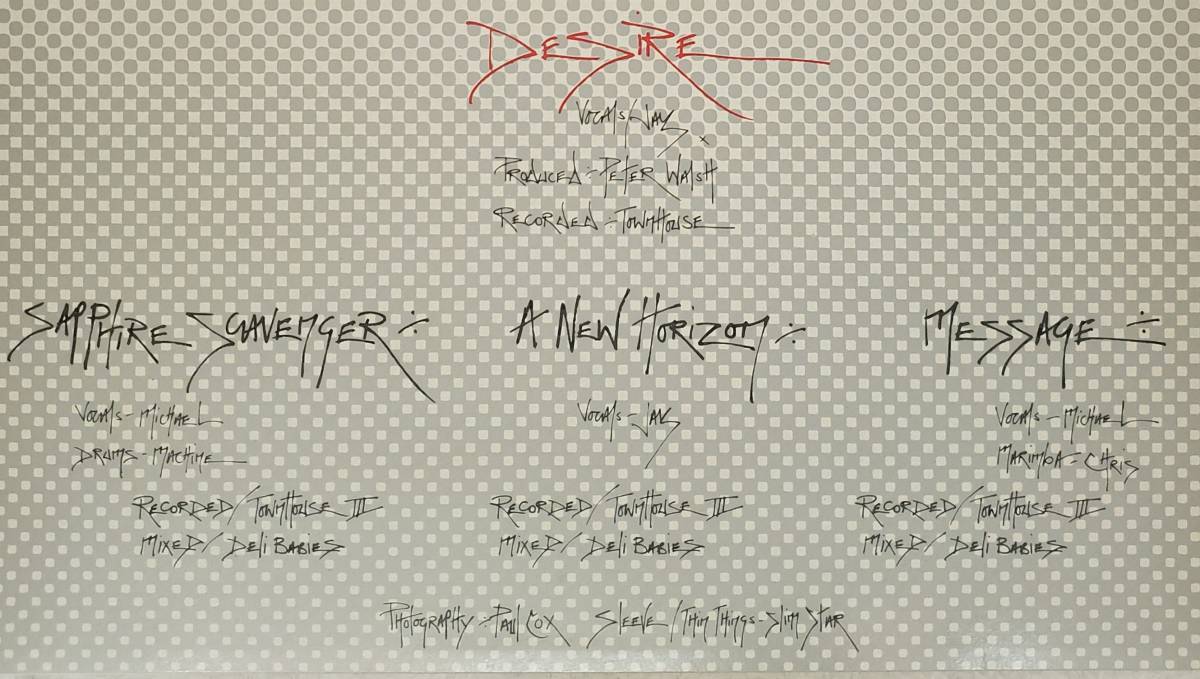 DESIRE
Vocals/Jay
Produced÷Peter Walsh
Recorded÷TownHouse
Sapphire Scavenger÷
A New Horizon÷
Message÷
Vocals-Michael
Drums-Machine
Vocals-Jay
Vocals-Michael
Marimba-Chris
Recorded/TownHouse III
Mixed/Deli Babies
Recorded/TownHouse III
Mixed/Deli Babies
Recorded/TownHouse III
Mixed/Deli Babies
Photography÷Paul Cox Sleeve/Thin Things-Slim Star